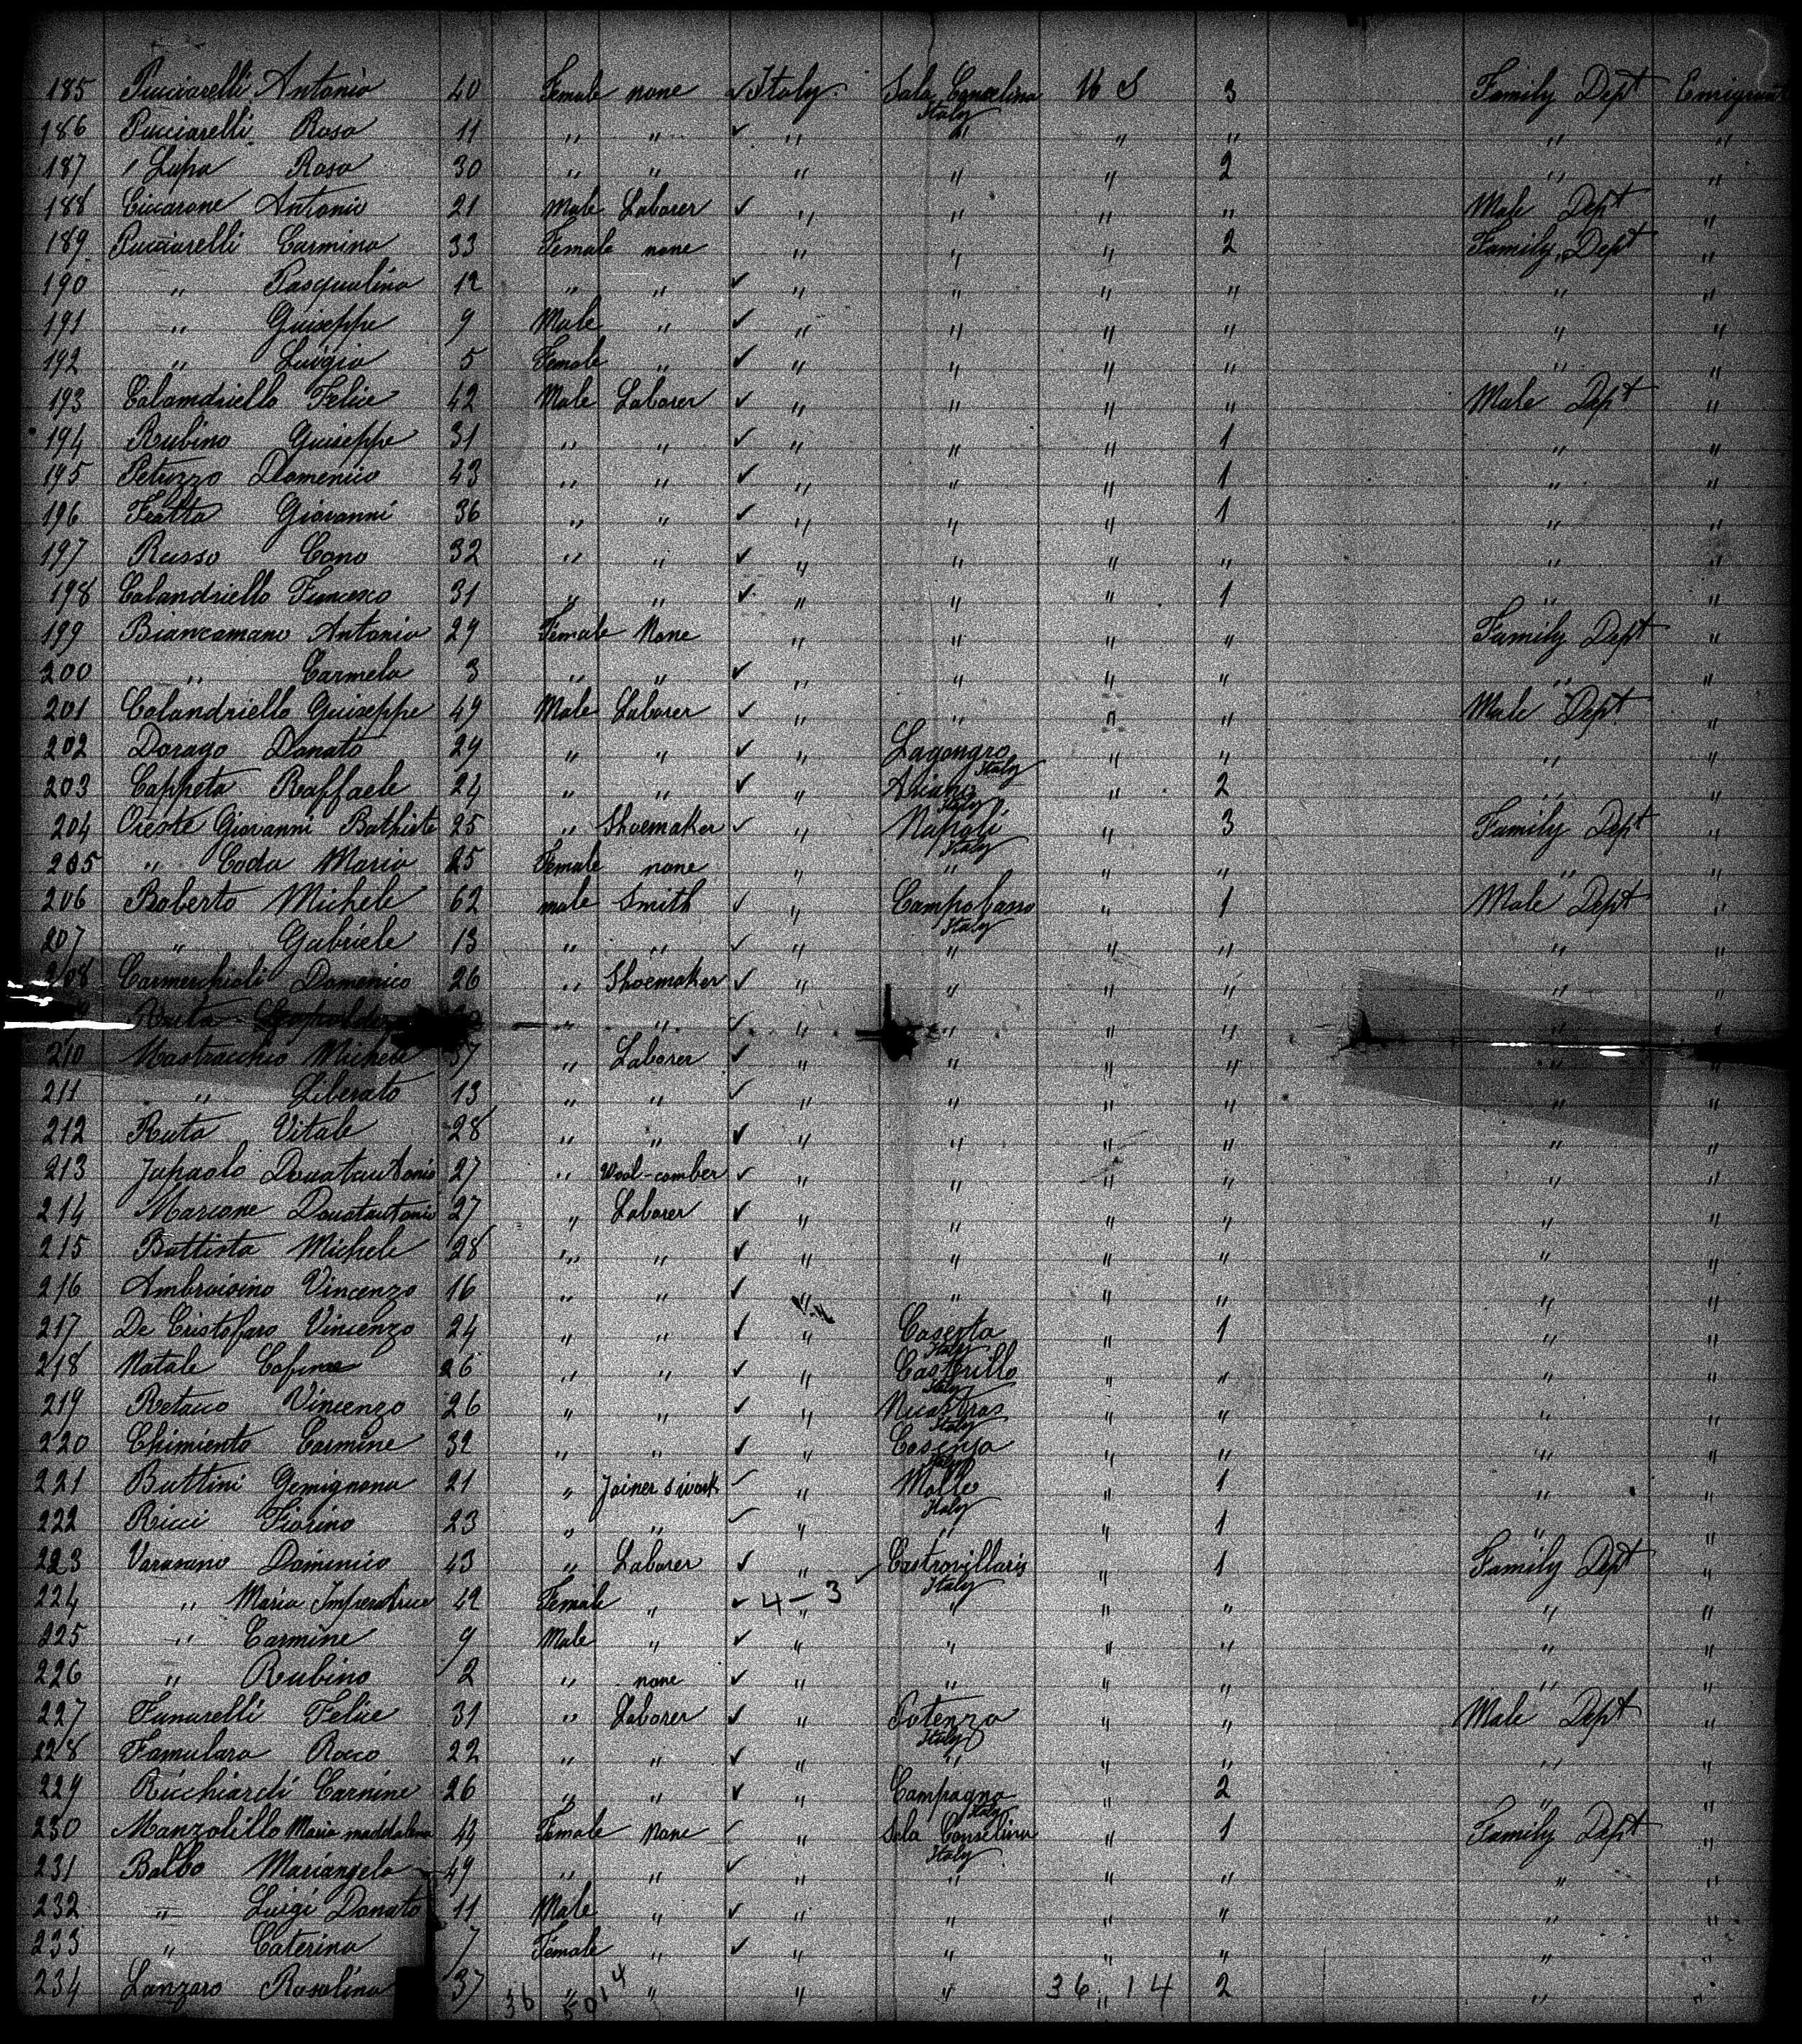 185 Pucciarelli Antonia 40 Female none ✓ Italy Sala Concelina Italy 16 S 3 Family Dept Emigrant
186 Pucciarelli Rosa 11 " " ✓ " " " " " "
187 " Lupa Rosa 30 " " " " " 2 " "
188 Ciccarone Antonio 21 Male Laborer ✓ " " " " Male Dept "
189 Pucciarelli Carmina 33 Female none " " " 2 Family Dept "
190 " Pasqualina 12 " " ✓ " " " " " "
191 " Guiseppe 9 Male " ✓ " " " " " "
192 " Luigia 5 Female " ✓ " " " " " "
193 Calandriello Felice 42 Male Laborer ✓ " " " " Male Dept "
194 Rubino Guiseppe 31 " " ✓ " " " 1 " "
195 Petrizzo Domenico 43 " " ✓ " " " 1 " "
196 Fratta Giovanni 36 " " ✓ " " " 1 " "
197 Russo Cono 32 " " ✓ " " " " " "
198 Calandriello Francesco 31 " " ✓ " " " 1 " "
199 Biancamano Antonia 29 Female None " " " " Family Dept "
200 " Carmela 3 " " ✓ " " " " " "
201 Calandriello Guiseppe 49 Male Laborer ✓ " " " " Male Dept "
202 Dorago Donato 29 " " ✓ " Lagongro Italy " " " "
203 Cappeta Raffaele 24 " " ✓ " Ariano Italy " 2 " "
204 Oreste Giovanni Bathiste 25 " Shoemaker ✓ " Napoli Italy " 3 Family Dept "
205 " Coda Maria 25 Female none " " " " " "
206 Boberto Michele 62 male Smith ✓ " Campobasso Italy " 1 Male Dept "
207 " Gabriele 13 " " ✓ " " " " " "
208 Domenico 26 " Shoemaker ✓ " " " " " "
Ruta " " ✓ " " " " "
210 Mastracchio Michele 37 " Laborer ✓ " " " " " "
211 " Liberato 13 " " ✓ " " " " " "
212 Ruta Vitale 28 " " ✓ " " " " " "
213 Japaolo Donatantonio 27 " Wool-comber ✓ " " " " " "
214 Marcone Donatantonio 27 " Laborer ✓ " " " " " "
215 Battista Michele 28 " " ✓ " " " " " "
216 Ambroisino Vincenzo 16 " " ✓ " " " " " "
217 De Cristofaro Vincenzo 24 " " ✓ " Caserta Italy " 1 " "
218 Natale 26 " " ✓ " Castrillo Italy " " " "
219 Retacco Vincenzo 26 " " ✓ " Nicastras Italy " " " "
220 Chimiento Carmine 32 " " ✓ " Cosenza Italy " " " "
221 Buttini Gemignana 21 " Joiner's work ✓ " Italy " 1 " "
222 Ricci Fiorino 23 " " ✓ " " " 1 " "
223 Varanano Dominico 43 " Laborer ✓ " Castrovillaris Italy " 1 Family Dept "
224 " Maria Imperatrice 42 Female " ✓ 4-3 " " " " " "
225 " Carmine 9 Male " ✓ " " " " " "
226 " Rubino 2 " none ✓ " " " " " "
227 Funarelli Felice 31 " Laborer ✓ " Potenza Italy " " Male Dept "
228 Famulara Rocco 22 " " ✓ " " " " " "
229 Ricchiardi Carmine 26 " " ✓ " Campagna Italy " 2 " "
230 Manzolillo Maria maddalena 42 Female None ✓ " Sala Conselina Italy " 1 Family Dept "
231 Balbo Mariangela 49 " " ✓ " " " " " "
232 " Luigi Donato 11 Male " ✓ " " " " " "
233 " Caterina 7 Female " ✓ " " " " " "
234 Lanzaro Rosalina 37 36 " 5014 " " " 36 " 14 2 " "